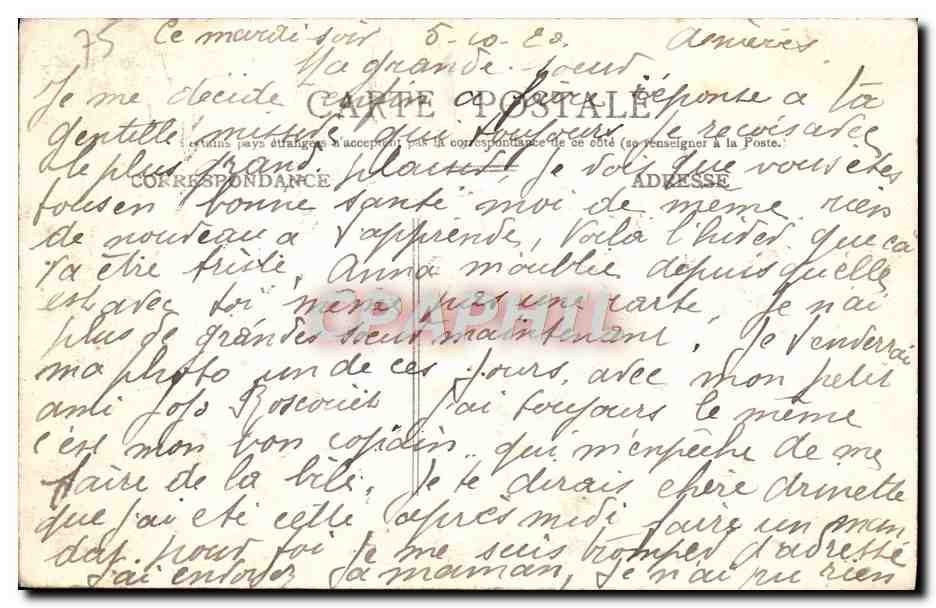 75 Ce mardi soir 5-10-20. Asnières
Ma grande soeur
Je me décide enfin a faire réponse a ta
CARTE POSTALE
gentille missive que toujours je reçois avec
Certains pays étrangers n'acceptent pas la correspondance de ce côté (se renseigner à la Poste.
le plus grand plaisir, je vois que vous êtes
CORRESPONDANCE ADRESSE
tous en bonne santé moi de même rien
de nouveau a t'apprendre, Voila l'hiver que ça
va être triste, Anna m'oublie depuis qu'elle
est avec toi même pas une carte, Je n'ai
CPAPHIL
plus de grandes soeur maintenant, Je t'enverrai
ma photo un de ces jours, avec mon petit
ami Jojo j'ai toujours le même
c'est mon bon copain qui m'enpêche de me
faire de la bile, Je te dirais chère
que j'ai eté cette après midi faire un man
dat pour toi Je me suis tromper d'adresse
J'ai envoyez ta maman, Je n'ai pu rien